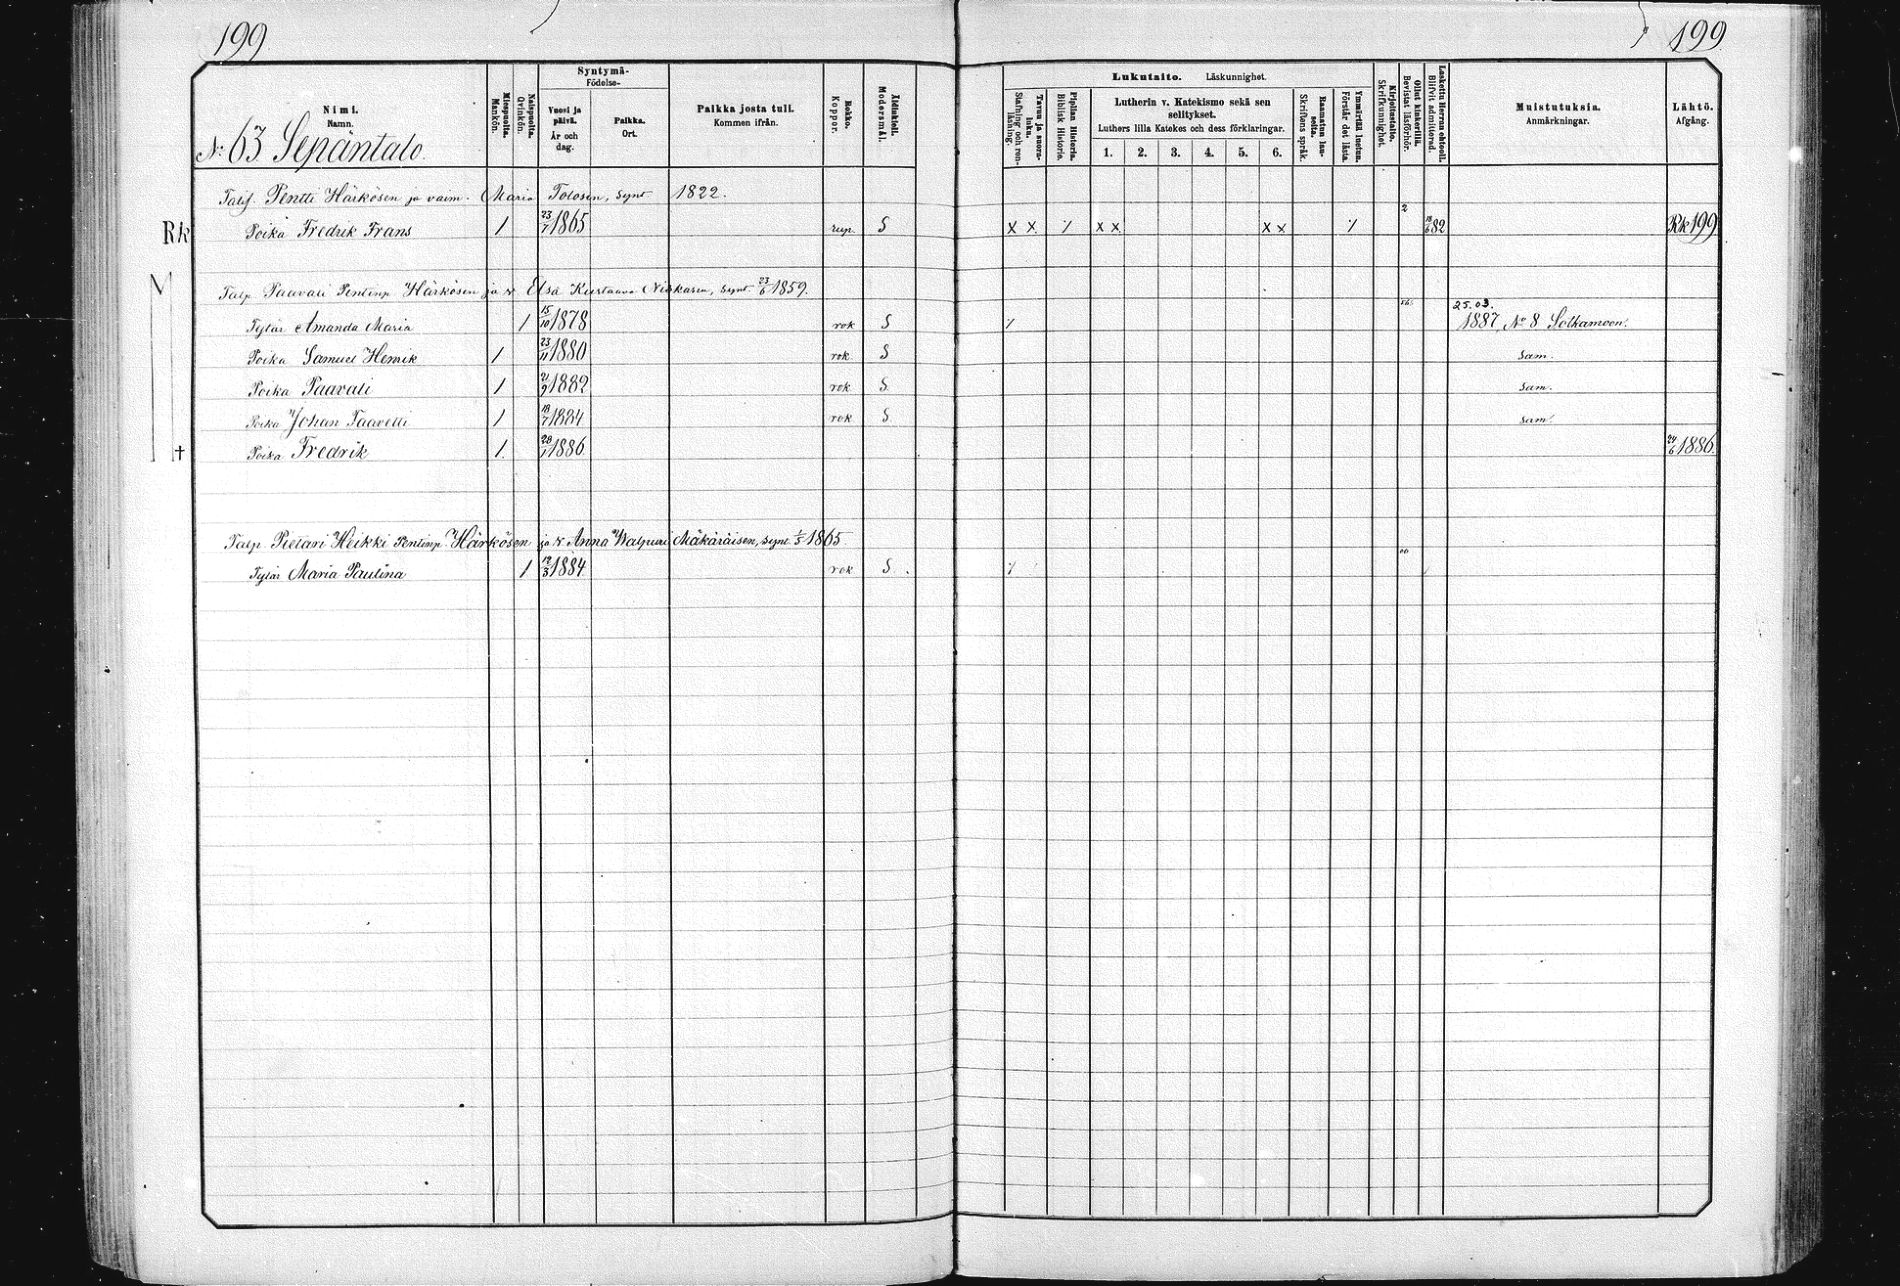 199
199
Nimi.
Namn.
Miespuolta.
Mankön.
Naispuolta.
Qvinkön.
Syntymä-
Födelse-
Vuosi ja päivä.
År och dag.
Paikka.
Ort.
Paikka josta tuli.
Kommen ifrån.
Rokko.
Koppor.
Äidinkieli.
Modersmål.
Lukutaito. Läskunnighet.
Tavuu ja suora-luku.
Stafning och ren-läsning.
Piplian Historia.
Biblisk Historie.
Lutherin v. Katekismo sekä sen selitykset.
Luthers lilla Katekes och dess förklaringar.
1. 2. 3. 4. 5. 6.
Raamatun lau-seita.
Skriftens språk.
Ymmärtää luetun.
Förstår det lästa.
Kirjoitustaito.
Skrifkunnighet.
Ollut kinkerillä.
Bevistat läsförhör.
Laskettu Herran ehtooll.
Blifvit admitterad.
Muistutuksia.
Anmärkningar.
Lähtö.
Afgång.
No 63 Sepäntalo.
Pentti Härkösen ja vaim. Maria Tolosen, synt 1822.
2
Rk Poika Fredrik Frans 1 23/7 1865 rup. S x x / x x x x / 18/6 82 Rk 199
Talp. Paavali Pentinp. Härkösen ja v. Elsa Kustaava Niskasen, synt. 23/6 1859.
25.03.
Tytär Amanda Maria 1 15/10 1878 rok S / 1887, No 8 Sotkamoon.
Poika Samuel Henrik 1 23/11 1880 rok S Sam.
Poika Paavali 1 21/9 1882 rok S Sam.
Poika Johan Taavetti 1 18/7 1884 rok S Sam.
† Poika Fredrik 1 28/1 1886 24/6 1886.
Talp. Pietari Heikki Pentinp. Härkösen ja v. Anna Walpuri Mäkäräisen, synt 1/5 1865
Tytär Maria Paulina 1 12/3 1884 rok S /